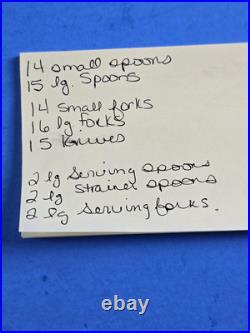 14 small spoons
15 lg. Spoons
14 small forks
16 lg. forks
15 Knives
2 lg Serving Spoons
2 lg Strainer spoons
2 lg Serving forks.